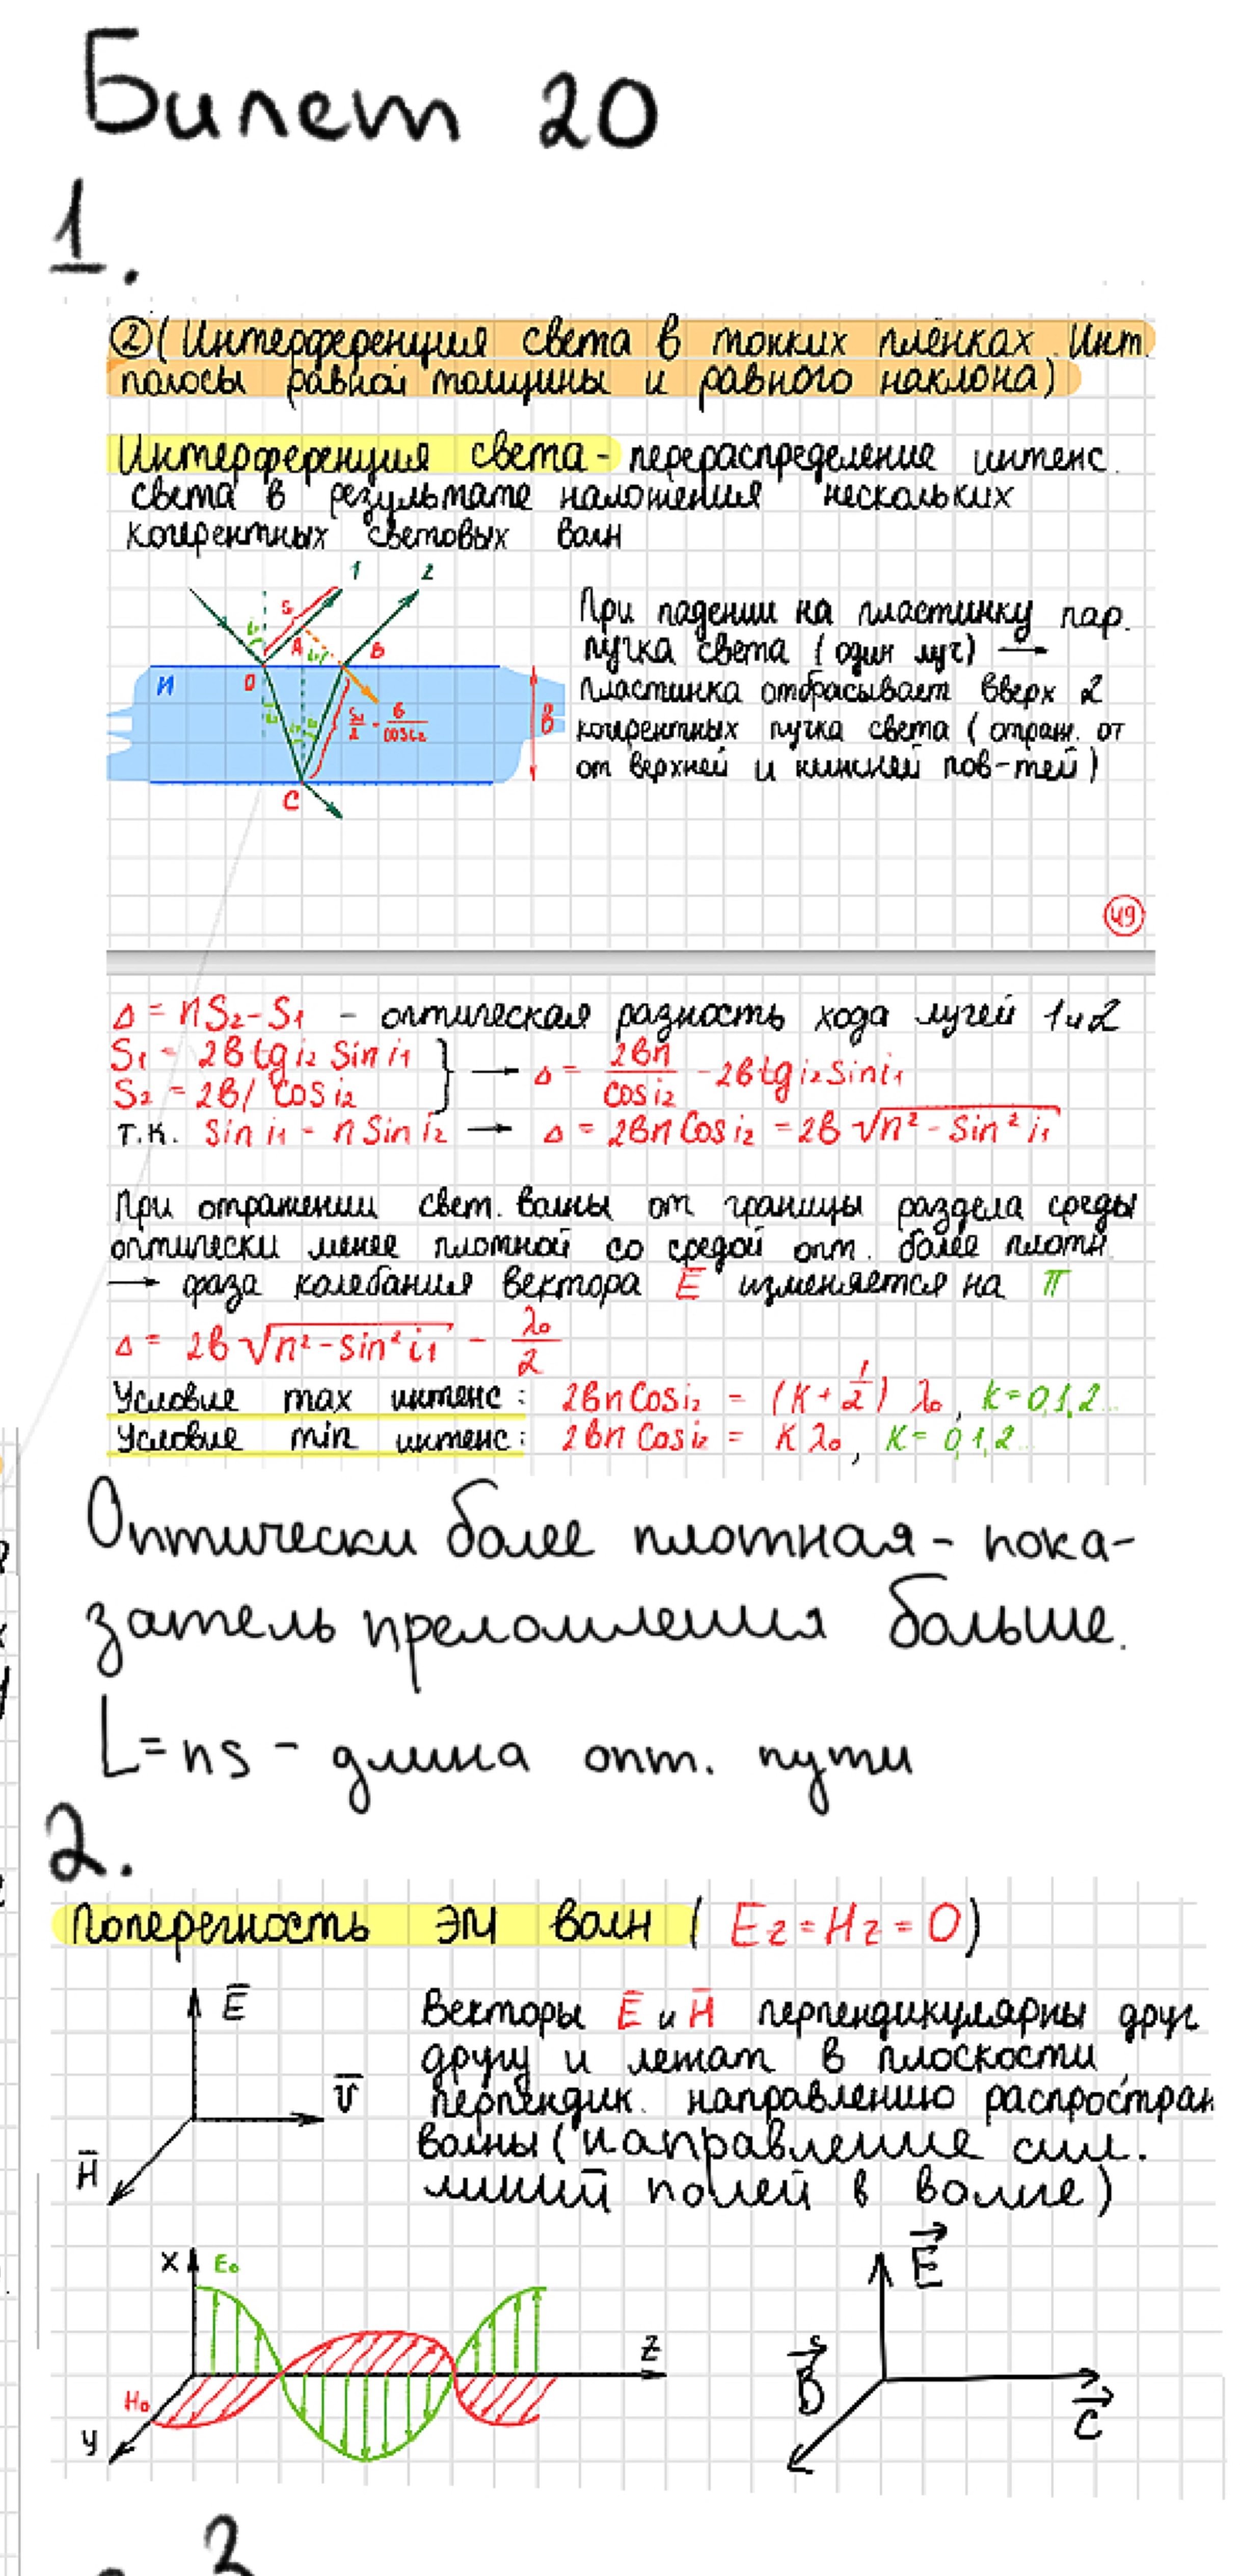 Билет 20
1.
② (Интерференция света в тонких плёнках. Инт.
полосы равной толщины и равного наклона)
Интерференция света - перераспределение интенс.
света в результате наложения нескольких
когерентных световых волн
1 2
S₁
i₁
A
i₁
B
O
n
i₂
i₂ i₂
S₂/2 = b/cos i₂
b
C
При падении на пластинку пар.
пучка света (один луч) →
пластинка отбрасывает вверх 2
когерентных пучка света (отраж. от
от верхней и нижней пов-тей)
49
Δ = nS₂ - S₁ - оптическая разность хода лучей 1 и 2
S₁ = 2b tg i₂ sin i₁
S₂ = 2b / cos i₂
} → Δ = 2bn/cos i₂ - 2b tg i₂ sin i₁
т.к. sin i₁ = n sin i₂ → Δ = 2bn cos i₂ = 2b √(n² - sin² i₁)
При отражении свет. волны от границы раздела среды
оптически менее плотной со средой опт. более плотн.
→ фаза колебания вектора E̅ изменяется на π
Δ = 2b √(n² - sin² i₁) - λ₀/2
Условие max интенс: 2bn cos i₂ = (k + 1/2) λ₀, k = 0,1,2...
Условие min интенс: 2bn cos i₂ = k λ₀, k = 0,1,2...
Оптически более плотная - пока-
затель преломления больше.
L = ns - длина опт. пути
2.
Поперечность ЭМ волн (Ez = Hz = 0)
E̅
υ̅
H̅
Векторы E̅ и H̅ перпендикулярны друг
другу и лежат в плоскости,
перпендик. направлению распростран
волны (направление сил.
линий полей в волне)
X E₀
Z
H₀
y
E⃗
B⃗
C⃗
3